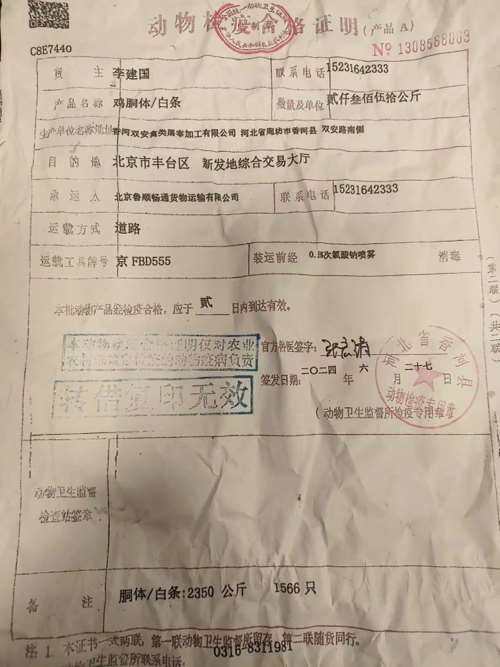 动物检疫合格证明(产品 A)
C8E7440
№ 1308568003
货 主 李建国 联系电话 15231642333
产品名称 鸡胴体/白条 数量及单位 贰仟叁佰伍拾公斤
生产单位名称地址 香河双安禽类屠宰加工有限公司 河北省廊坊市香河县 双安路南侧
目 的 地 北京市丰台区 新发地综合交易大厅
承 运 人 北京鲁顺畅通货物运输有限公司 联系电话 15231642333
运载方式 道路
运载工具牌号 京FBD555 装运前经 次氯酸钠喷雾 消毒
本批动物产品经检疫合格,应于 贰 日内到达有效。
本动物检疫合格证明仅对农业
转借复印无效
官方兽医签字:
签发日期: 二〇二四 年 六 月 二十七 日
河北省香河县
动物检疫专用章
(动物卫生监督所检疫专用章)
动物卫生监督
检查站签章
备 注 胴体/白条:2350 公斤 1566 只
注 1. 本证书一式两联,第一联动物卫生监督所留存,第二联随货同行。
动物卫生监督所联系电话: 0316-8311981
第二联